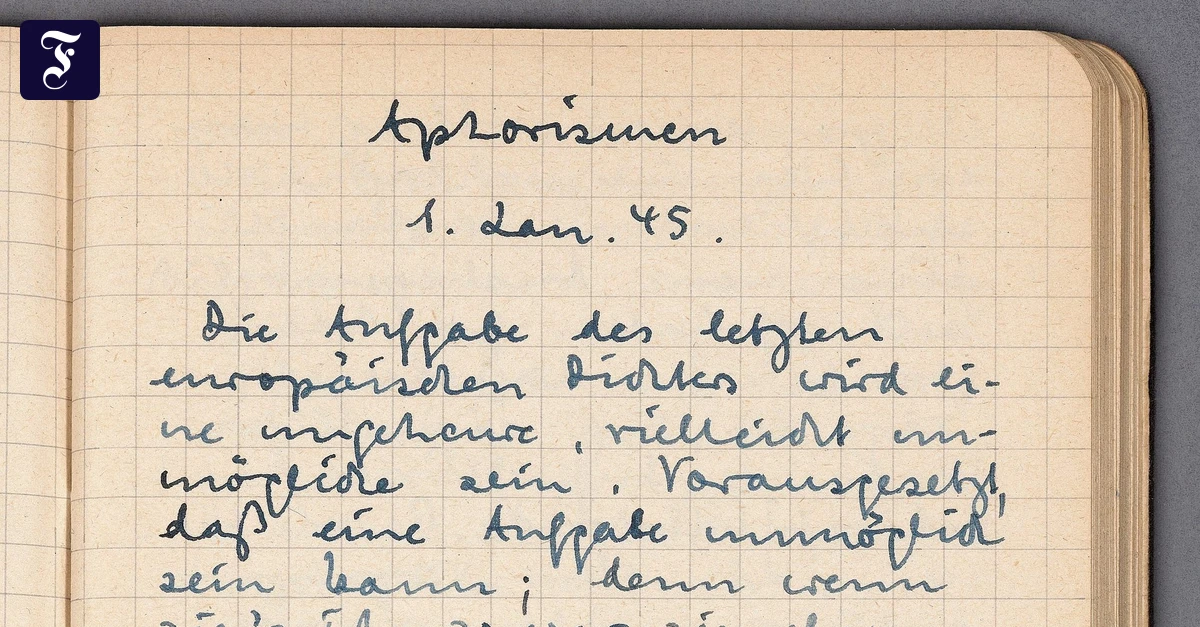 F
Aphorismen
1. Jan. 45.
Die Aufgabe des letzten
europäischen Dichters wird ei-
ne ungeheure, vielleicht un-
mögliche sein. Vorausgesetzt,
daß eine Aufgabe unmöglich
sein kann; denn wenn